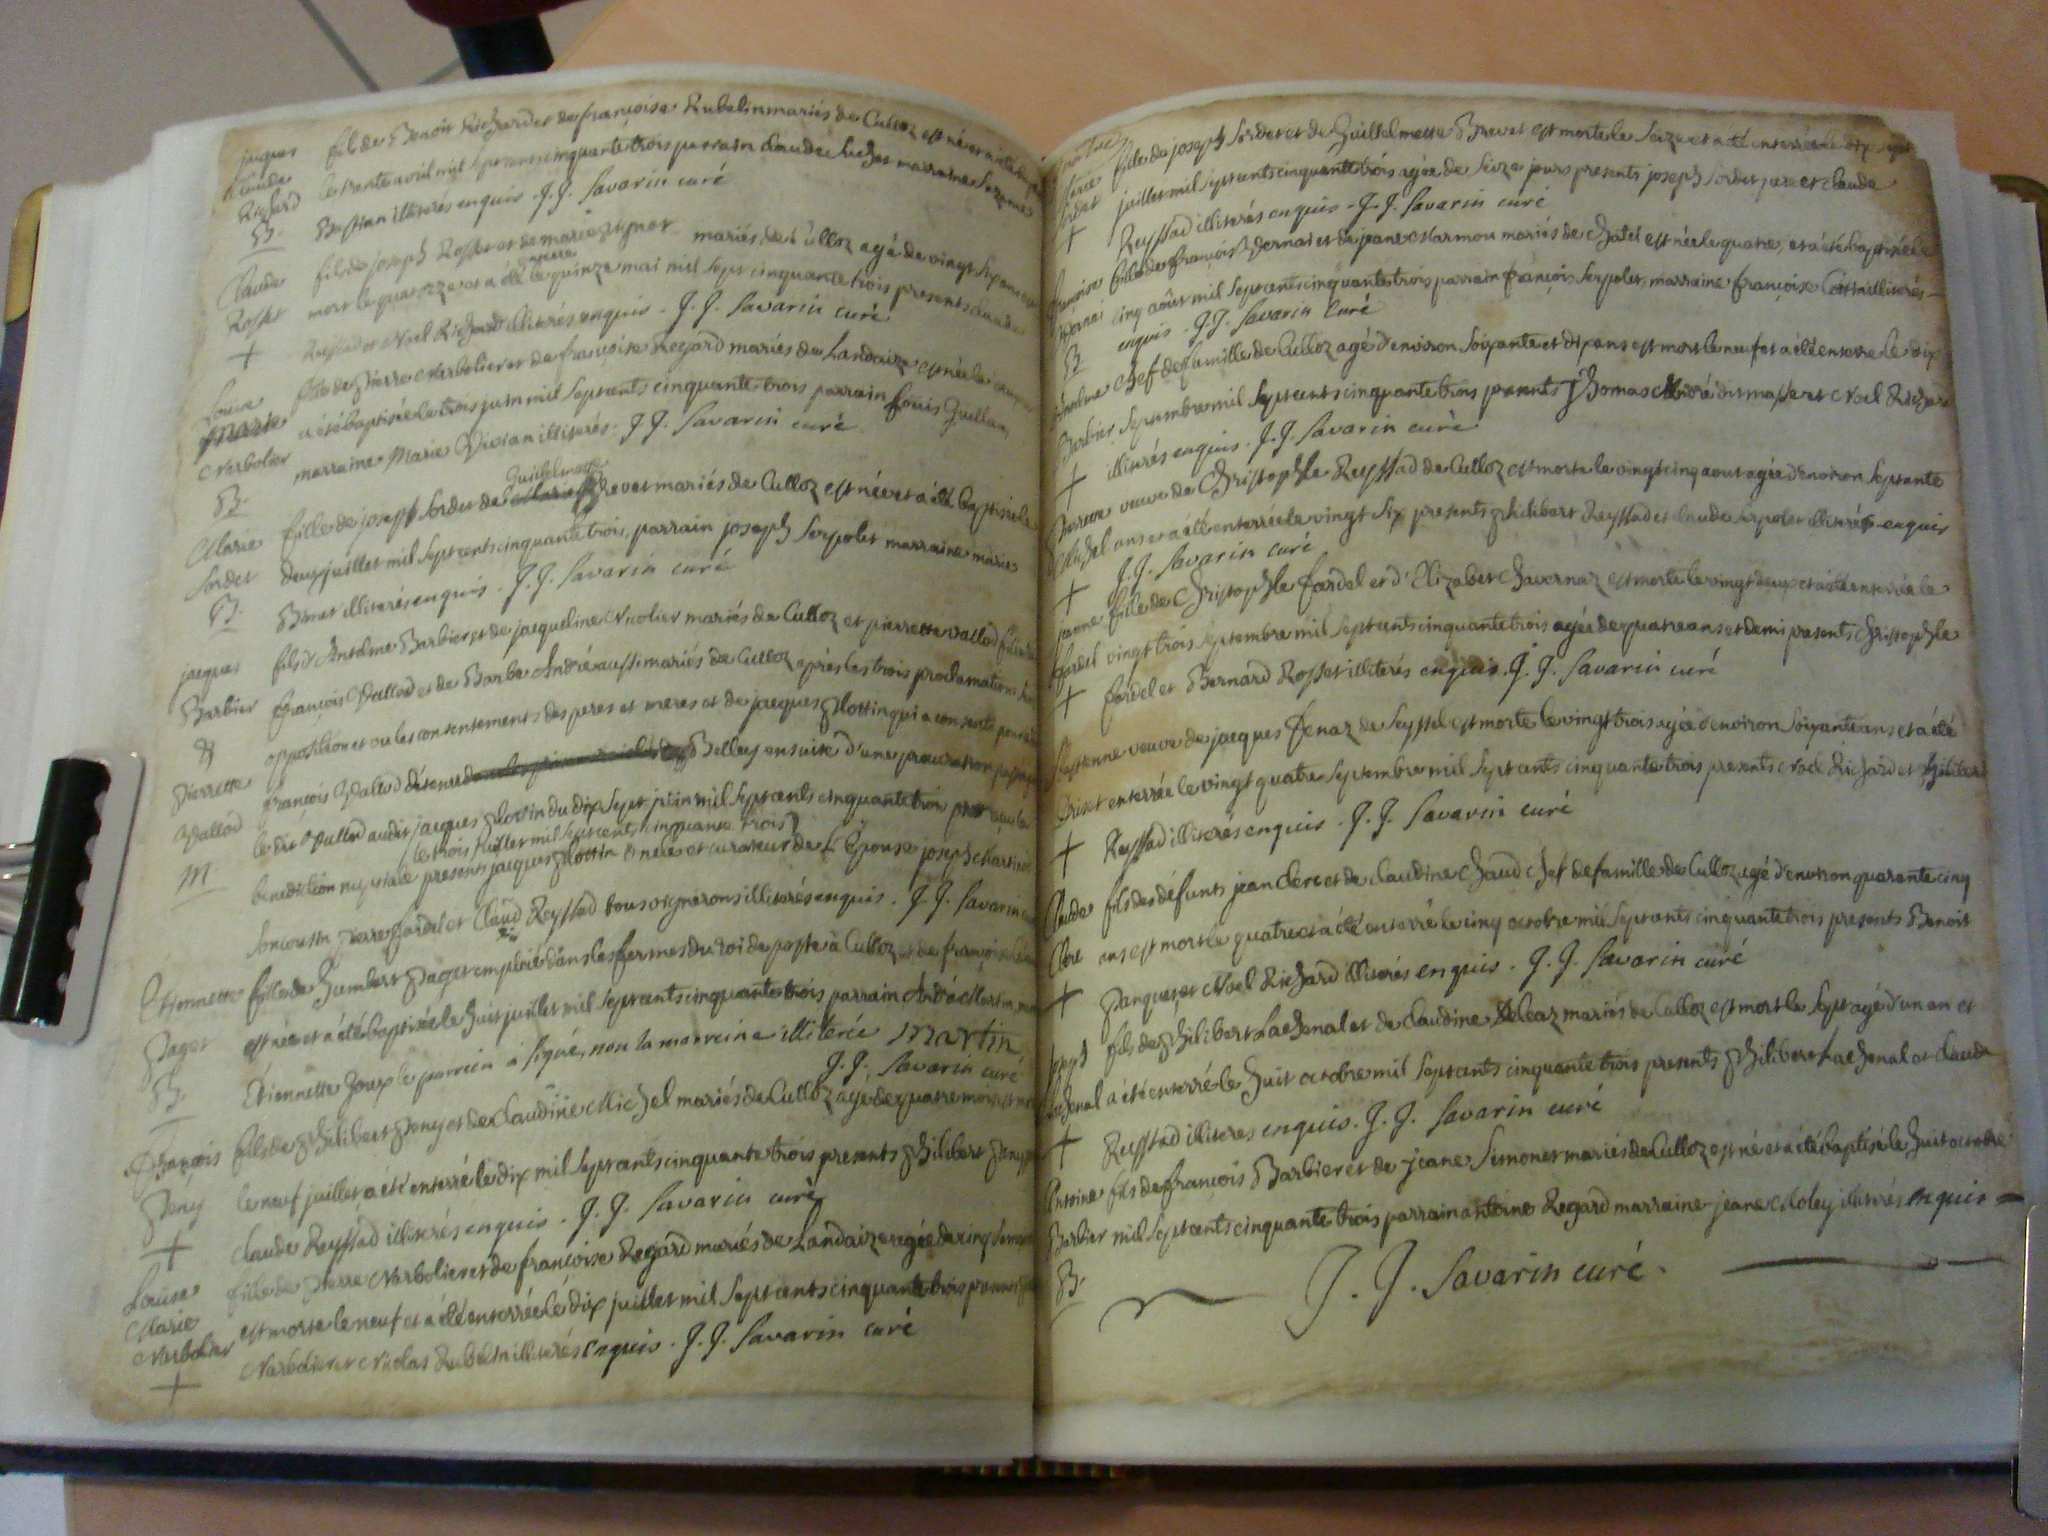 jaques fils de Benoit Richard et de françoise Rubelin mariés de Culloz est né et a été
Claude le trente avril mil sept cents cinquante trois parrain Claude marraine Suzanne
Richard Bastian illiterés enquis. J. J. Savarin curé
B.
Claude fils de joseph Rosset et de marie mariés de Culloz agé de vingt sept ans est
Rosset mort le quatorze et a été enterré le quinze mai mil sept cinquante trois presents claude
+ Reyssad et Noel Richard illiterés enquis. J. J. Savarin curé
Louise fille de Pierre Narbolier et de françoise Regard mariés de Landaize est née le
Marie a été baptisée le trois juin mil sept cents cinquante trois parrain Louis Guillan
Narbolier marraine Marie Vivian illiterés. J. J. Savarin curé
B.
Guillelmette
Marie fille de joseph Sordet de Brevet mariés de Culloz est née et a été baptisée le
Sordet deux juillet mil sept cents cinquante trois, parrain joseph Serpolet marraine marie
B. Brevet illiterés enquis. J. J. Savarin curé
jaques fils d'Antelme Barbier et de jacqueline Nicolier mariés de Culloz et pierrette vallod fille de
Barbier françois Vallod et de Barbe André aussi mariés de Culloz après les trois proclamations
& opposition et vu les consentements des peres et meres et de jacques Plottin qui a consenti pour
Pierrette françois Vallod détenu Belley ensuite d'une procuration passée
Vallod le dit Vallod audit jacques du dix sept juin mil sept cents cinquante trois
le trois juillet mil sept cent cinquante trois
M. benediction nuptiale presents jacques Plottin et curateur de l'Epouse joseph Martin
pierre fardel et Claud Reyssad tous vignerons illiterés enquis. J. J. Savarin
Etiennette fille de Humbert Paget emploié dans les fermes du roi de poste à Culloz et de françoise
Paget est née et a été baptisée le huit juillet mil sept cents cinquante trois parrain André Martin
B. Etiennette Joux le parrain a signé, non la marreine illiterée Martin
J. J. Savarin curé
François fils de Philibert Peny et de Claudine Michel mariés de Culloz agé de quatre mois est mort
Peny le neuf juillet a été enterré le dix mil sept cents cinquante trois presents Philibert Peny
+ claude Reyssad illiterés enquis. J. J. Savarin curé
Louise fille de Pierre Narbolier et de françoise Regard mariés de Landaize agée de cinq semaines
Marie est morte le neuf et a été enterrée le dix juillet mil sept cents cinquante trois
Narbolier Narbolier et Nicolas Rubelin illiterés enquis. J. J. Savarin curé
+
fille de joseph Sordet et de Guillelmette Brevet est morte le seize et a été enterrée le dix sept
Sordet juillet mil sept cents cinquante trois agée de seize jours presents joseph Sordet pere et claude
+ Reyssad illiterés enquis. J. J. Savarin curé
françoise fille de françois Bernai et de jeane Marmou mariés de Chatel est née le quatre, et a été baptisée le
Bernai cinq août mil sept cents cinquante trois parrain françois Serpolet, marraine françoise illiterés
B enquis. J. J. Savarin Curé
Antelme Chef de famille de Culloz agé d'environ soixante et dix ans est mort le neuf et a été enterré le dix
Barbier Septembre mil sept cents cinquante trois presents Thomas André dit massert Noel Richard
+ illiterés enquis. J. J. Savarin curé
Pierrette veuve de Christophle Reyssad de Culloz est morte le vingt cinq aout agée d'environ septante
Michel ans et a été enterrée le vingt six presents Philibert Reyssad et claude Serpolet illiterés enquis
+ J. J. Savarin curé
jeane fille de Christophle fardel et d'Elizabet Chavernaz est morte le vingt deux et a été enterrée le
fardel vingt trois septembre mil sept cents cinquante trois agée de quatre ans et demi presents Christophle
+ fardel et Bernard Rosset illiterés enquis. J. J. Savarin curé
veuve de jacques Fenaz de Seyssel est morte le vingt trois agée d'environ soixante ans et a été
enterrée le vingt quatre septembre mil sept cents cinquante trois presents Noel Richard et Philibert
+ Reyssad illiterés enquis. J. J. Savarin curé
Claude fils des défunts jean Clerc et de claudine Chaud chef de famille de Culloz agé d'environ quarante cinq
Clerc ans est mort le quatre et a été enterré le cinq octobre mil sept cents cinquante trois presents Benoit
+ Panquet et Noel Richard illiterés enquis. J. J. Savarin curé
joseph fils de Philibert Lachenal et de claudine Deleaz mariés de Culloz est mort le sept agé d'un an et
Lachenal a été enterré le huit octobre mil sept cents cinquante trois presents Philibert Lachenal et claude
+ Reyssad illiteres enquis. J. J. Savarin curé
Antoine fils de françois Barbier et de jeane Simonet mariés de Culloz est né et a été baptisé le huit octobre
Barbier mil sept cents cinquante trois parrain antoine Regard marraine jeane Moley illiterés enquis
B. J. J. Savarin curé.